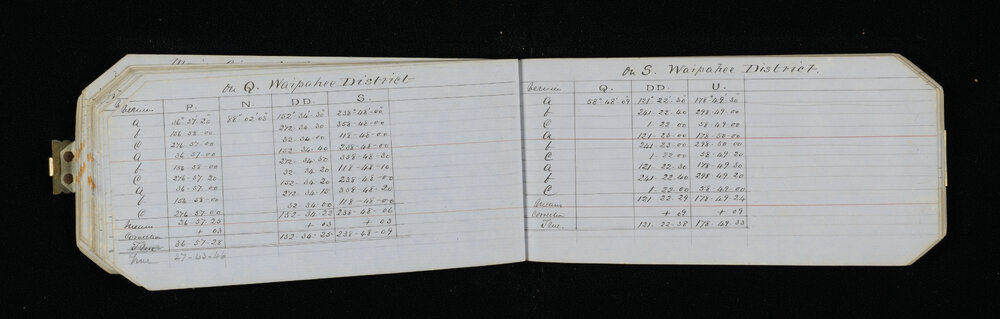 On Q. Waipahee District
Vernier P. N. DD. S.
a 36°57'20 88°02'03" 152°34'30" 238°48'00"
b 156-58-00 272-34-30 358-48-00
C 276-57-00 32-34-00 118-48-00
a 36-57-00 152-34-40 238-48-00
b 156-58-00 272-34-50 358-48-30
C 276-57-20 32-34-20 118-48-10
a 36-57-00 152-34-20 238-48-00
b 156-58-00 272-34-10 358-48-20
C 276-57-00 32-34-00 118-48-00
Mean 36-57-25 152-34-22 238-48-06
Correction + 03 + 03 + 03
True 36-57-28 152-34-25 238-48-09
True 27-43-46
On S. Waipahee District.
Vernier Q. DD. U.
a 58°48'09 121°22'30" 178°49'30"
b 241-22-40 298-49-00
C 1-22-00 58-49-00
a 121-23-00 178-50-00
b 241-23-00 298-50-00
C 1-22-00 58-49-20
a 121-22-30 178-49-30
b 241-22-40 298-49-20
C 1-22-00 58-49-00
Mean 121-22-29 178-49-24
Correction + 09 + 09
True. 121-22-38 178-49-33